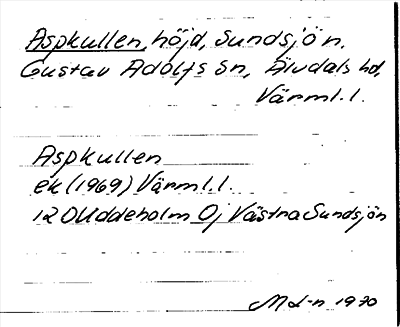 Aspkullen, höjd, Sundsjön,
Gustav Adolfs sn, Älvdals hd,
Värml. l.
Aspkullen
ek (1969) Värml. l.
12D Uddeholm 0j Västra Sundsjön
ML-n 1970